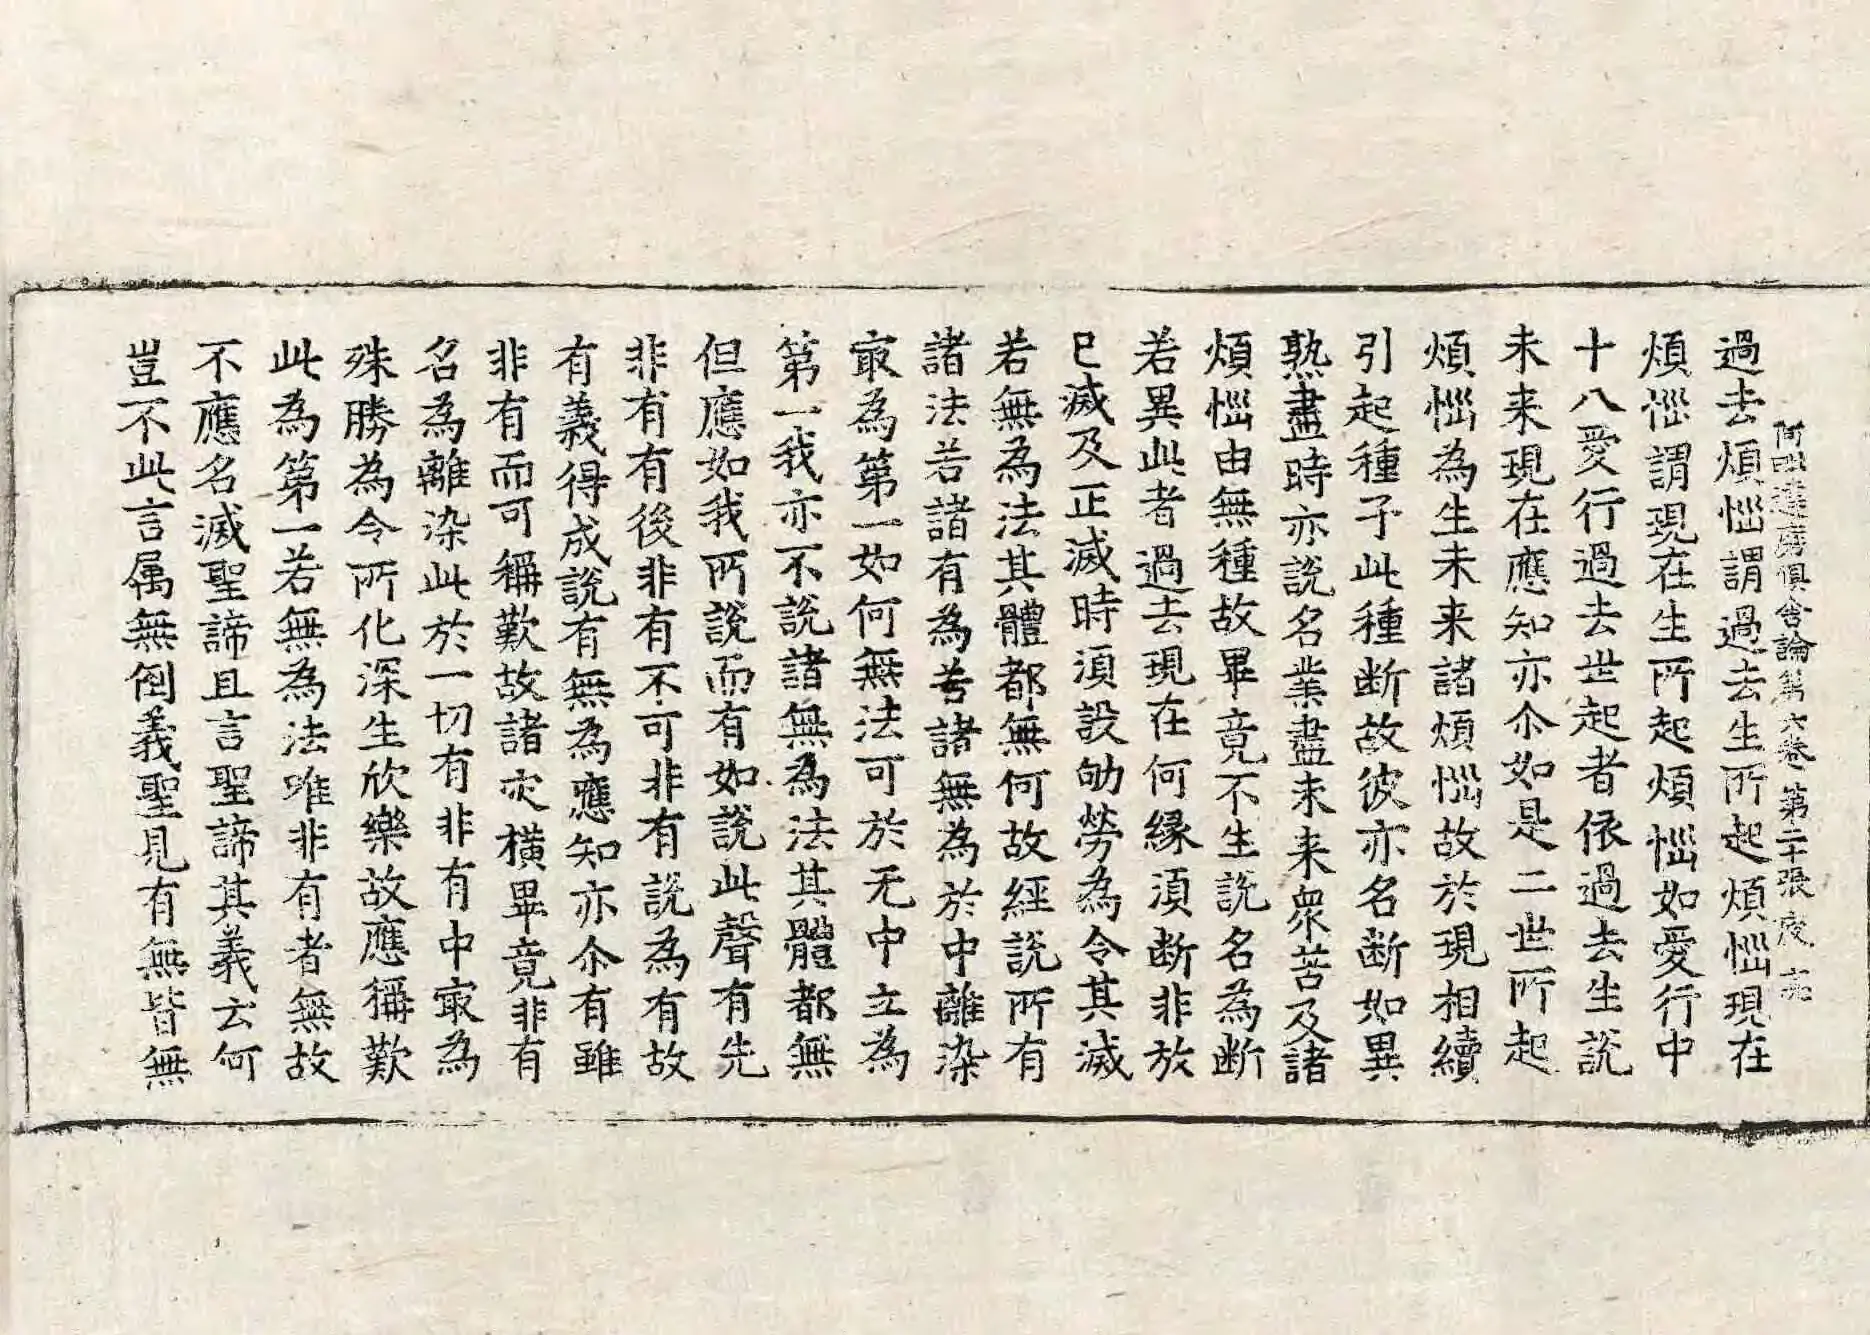 阿毗達磨俱舍論第六卷 第二十張 度 亦
過去煩惱謂過去生所起煩惱現在
煩惱謂現在生所起煩惱如愛行中
十八愛行過去世起者依過去生說
未来現在應知亦尒如是二世所起
煩惱為生未来諸煩惱故於現相續
引起種子此種断故彼亦名断如異
熟盡時亦說名業盡未来衆苦及諸
煩惱由無種故畢竟不生說名為断
若異此者過去現在何緣湏断非於
已滅及正滅時湏設劬勞為令其滅
若無為法其體都無何故經說所有
諸法若諸有為若諸無為於中離染
㝡為第一如何無法可於无中立為
第一我亦不說諸無為法其體都無
但應如我所說而有如說此聲有先
非有有後非有不可非有說為有故
有義得成說有無為應知亦尒有雖
非有而可稱歎故諸灾橫畢竟非有
名為離染此於一切有非有中㝡為
殊勝為令所化深生欣樂故應稱歎
此為第一若無為法唯非有者無故
不應名滅聖諦且言聖諦其義云何
豈不此言属無倒義聖見有無皆無